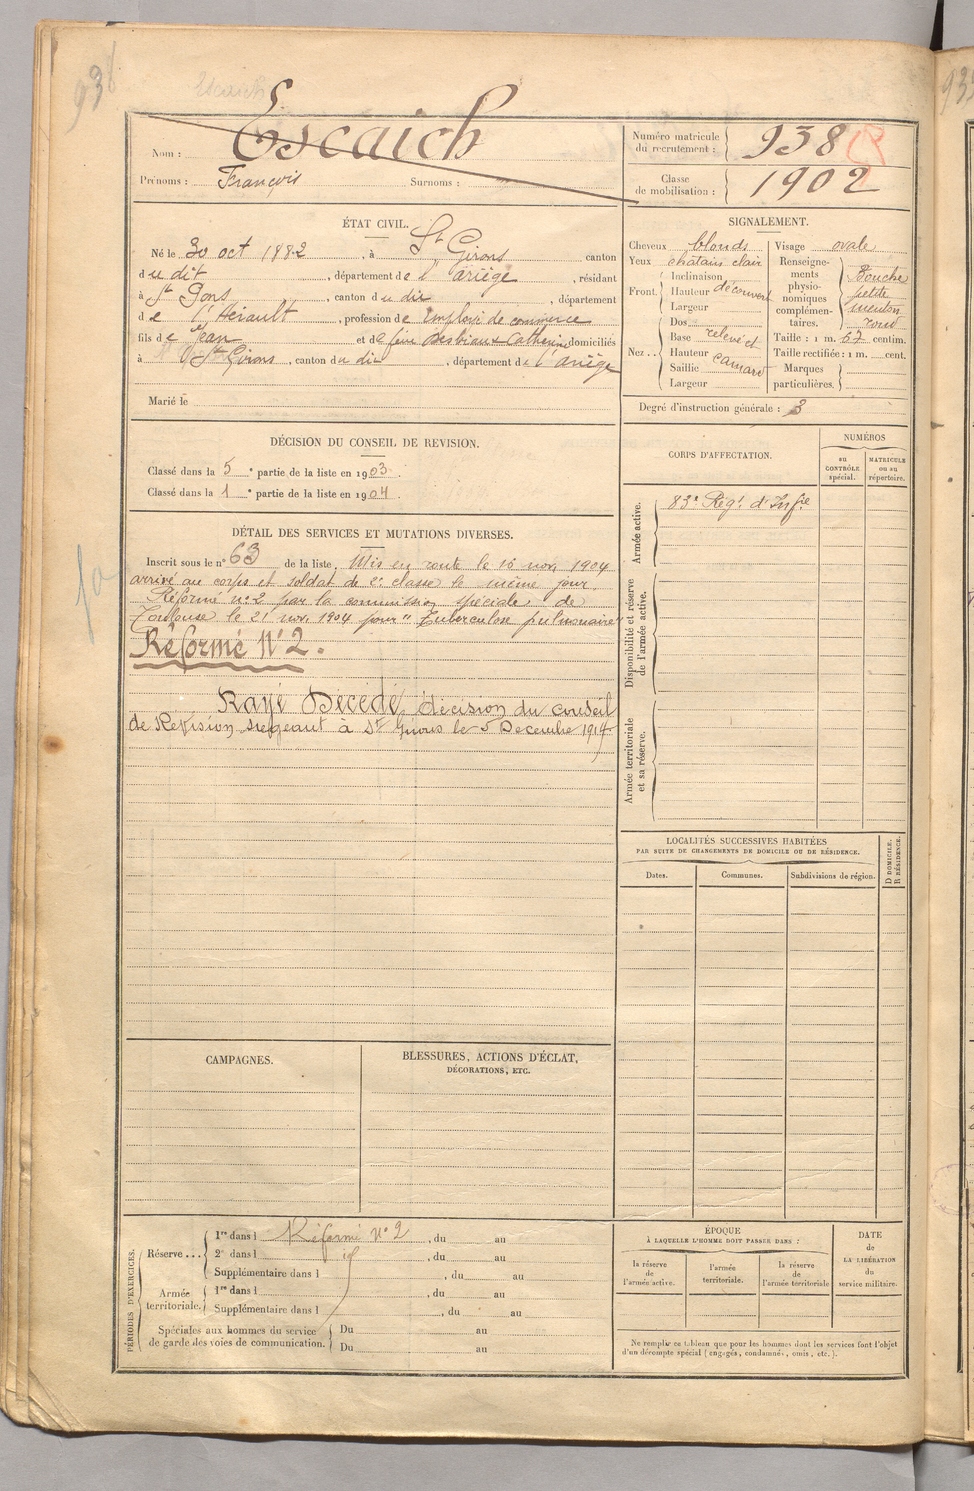 938
Escaich
Nom : Escaich
Prénoms : François Surnoms :
Numéro matricule du recrutement : 938
Classe de mobilisation : 1902
ÉTAT CIVIL.
Né le 30 oct 1882, à St Girons canton
du dit, département de l'Ariège, résidant
à St Pons, canton du dit, département
de l'Hérault, profession de Employé de commerce
fils de Jean et de feue Catherine domiciliés
à St Girons, canton du dit, département de l'Ariège
Marié le
SIGNALEMENT.
Cheveux blonds
Yeux chatain clair
Front. Inclinaison
Hauteur découvert
Largeur
Nez.. Dos
Base relevé et
Hauteur camard
Saillie
Largeur
Visage ovale
Renseignements physionomiques complémentaires. Bouche petite menton rond
Taille : 1 m. 67 centim.
Taille rectifiée : 1 m. cent.
Marques particulières.
Degré d'instruction générale : 3
DÉCISION DU CONSEIL DE REVISION.
Classé dans la 5e partie de la liste en 1903.
Classé dans la 1e partie de la liste en 1904.
DÉTAIL DES SERVICES ET MUTATIONS DIVERSES.
Inscrit sous le n° 63 de la liste, Mis en route le 16 nov 1904
arrivé au corps et soldat de 2e classe le même jour.
Réformé n° 2 par la commission spéciale de
Toulouse le 21 nov. 1904 pour "Tuberculose pulmonaire
Réformé N° 2.
Rayé Décédé, décision du conseil
de Révision siégeant à St Girons le 5 Décembre 1914
CORPS D'AFFECTATION.
NUMÉROS
au CONTRÔLE spécial.
MATRICULE ou au répertoire.
Armée active.
83e Régt d'Infie
Disponibilité et réserve de l'armée active.
Armée territoriale et sa réserve.
LOCALITÉS SUCCESSIVES HABITÉES
PAR SUITE DE CHANGEMENTS DE DOMICILE OU DE RÉSIDENCE.
Dates.
Communes.
Subdivisions de région.
D DOMICILE.
R RÉSIDENCE.
CAMPAGNES.
BLESSURES, ACTIONS D'ÉCLAT,
DÉCORATIONS, ETC.
PÉRIODES D'EXERCICES.
Réserve... 1re dans l Réformé N° 2, du au
2e dans l, du au
Supplémentaire dans l, du au
Armée territoriale. 1re dans l, du au
Supplémentaire dans l, du au
Spéciales aux hommes du service Du au
de garde des voies de communication. Du au
ÉPOQUE
À LAQUELLE L'HOMME DOIT PASSER DANS :
la réserve de l'armée active.
l'armée territoriale.
la réserve de l'armée territoriale
DATE
de
LA LIBÉRATION
du
service militaire.
Ne remplir ce tableau que pour les hommes dont les services font l'objet
d'un décompte spécial (engagés, condamnés, omis, etc.).